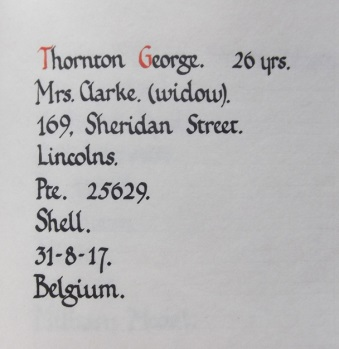 Thornton George. 26 yrs.
Mrs. Clarke. (widow).
169, Sheridan Street.
Lincolns.
Pte. 25629.
Shell.
31-8-17.
Belgium.